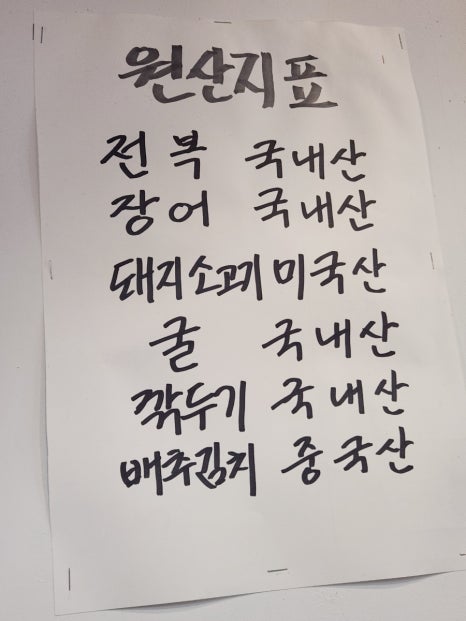 원산지표
전복 국내산
장어 국내산
돼지소고기 미국산
굴 국내산
깍두기 국내산
배추김치 중국산